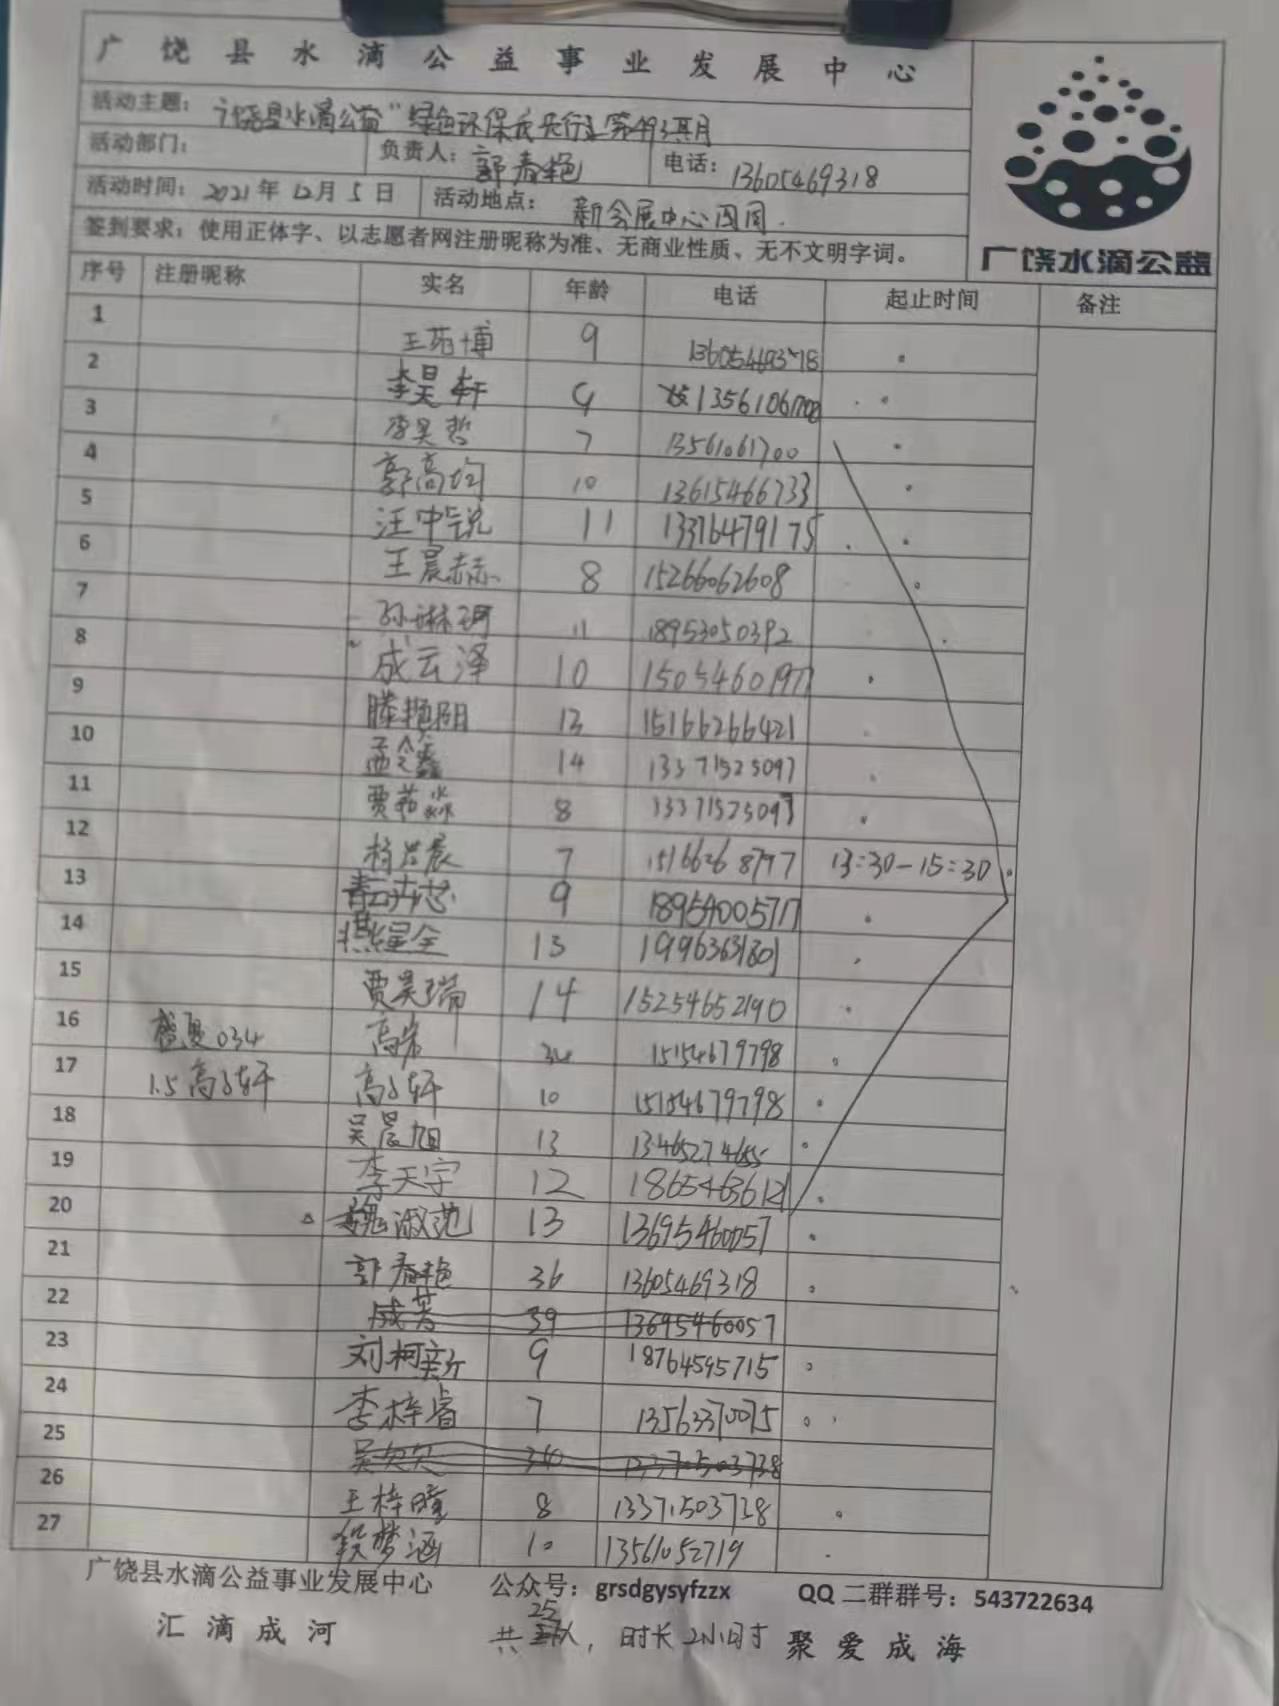 广饶县水滴公益事业发展中心
广饶水滴公益
活动主题：广饶县水滴公益"绿色环保我先行"第493期
活动部门： 负责人：郭春艳 电话：13605469318
活动时间：2021年12月5日 活动地点：新会展中心周围.
签到要求：使用正体字、以志愿者网注册昵称为准、无商业性质、无不文明字词。
序号 注册昵称 实名 年龄 电话 起止时间 备注
1 王苑博 9
2 李昊轩 9
3 李昊哲 7 13561061700
4 郭高均 10 13615466733
5 汪中锐 11 13376479175
6 王晨赫 8 15266062608
7 孙琳珂 11 18953050392
8 成云泽 10
9 滕艳阳 13 15166266421
10 14 13371525097
11 贾茹淼 8 13371525097
12 杨岩晨 7 15166268797 13:30-15:30
13 9
14 13
15 贾昊瑞 14 15254652190
16 盛夏034 高岩 34 15154679798
17 1.5高子轩 高子轩 10 15154679798
18 吴晨旭 13 13465274655
19 李天宇 12
20 魏淑范 13 13695460057
21 郭春艳 36 13605469318
22 成芳 39 13695460057
23 刘柯新 9 18764595715
24 李梓睿 7 13563370075
25 吴欠欠 13371503738
26 王梓瞳 8 13371503738
27 段梦涵 10 13561052719
广饶县水滴公益事业发展中心 公众号：grsdgysyfzzx QQ二群群号：543722634
汇滴成河 共25人，时长2小时 聚爱成海